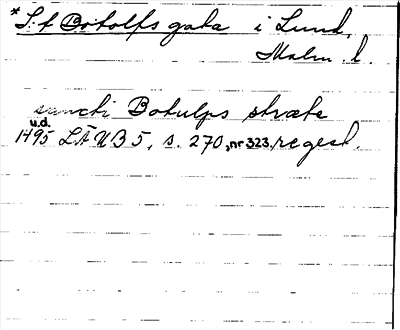 *S:t Botolfs gata i Lund,
Malm. l.
sancti Botulps stræte
u.d.
1495 LÄUB 5, s. 270, nr 323, regest.